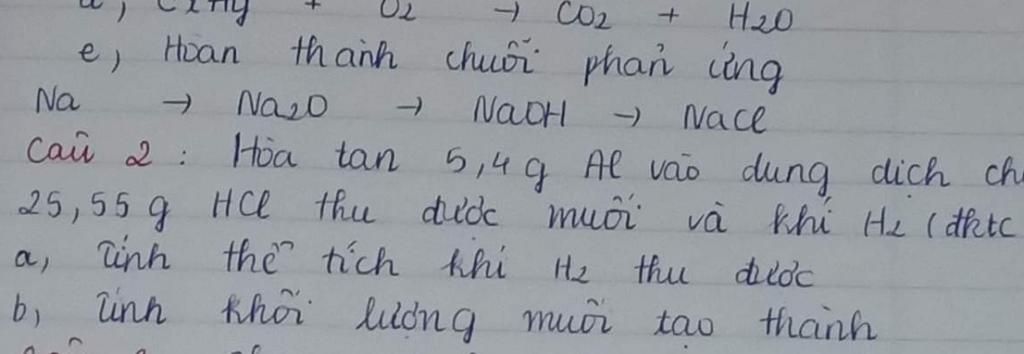 , CxHy + O2 → CO2 + H2O
e, Hoàn thành chuỗi phản ứng
Na → Na2O → NaOH → NaCl
Câu 2 : Hòa tan 5,4 g Al vào dung dịch ch
25,55 g HCl thu được muối và khí H2 (đktc
a, Tính thể tích khí H2 thu được
b, Tính khối lượng muối tạo thành